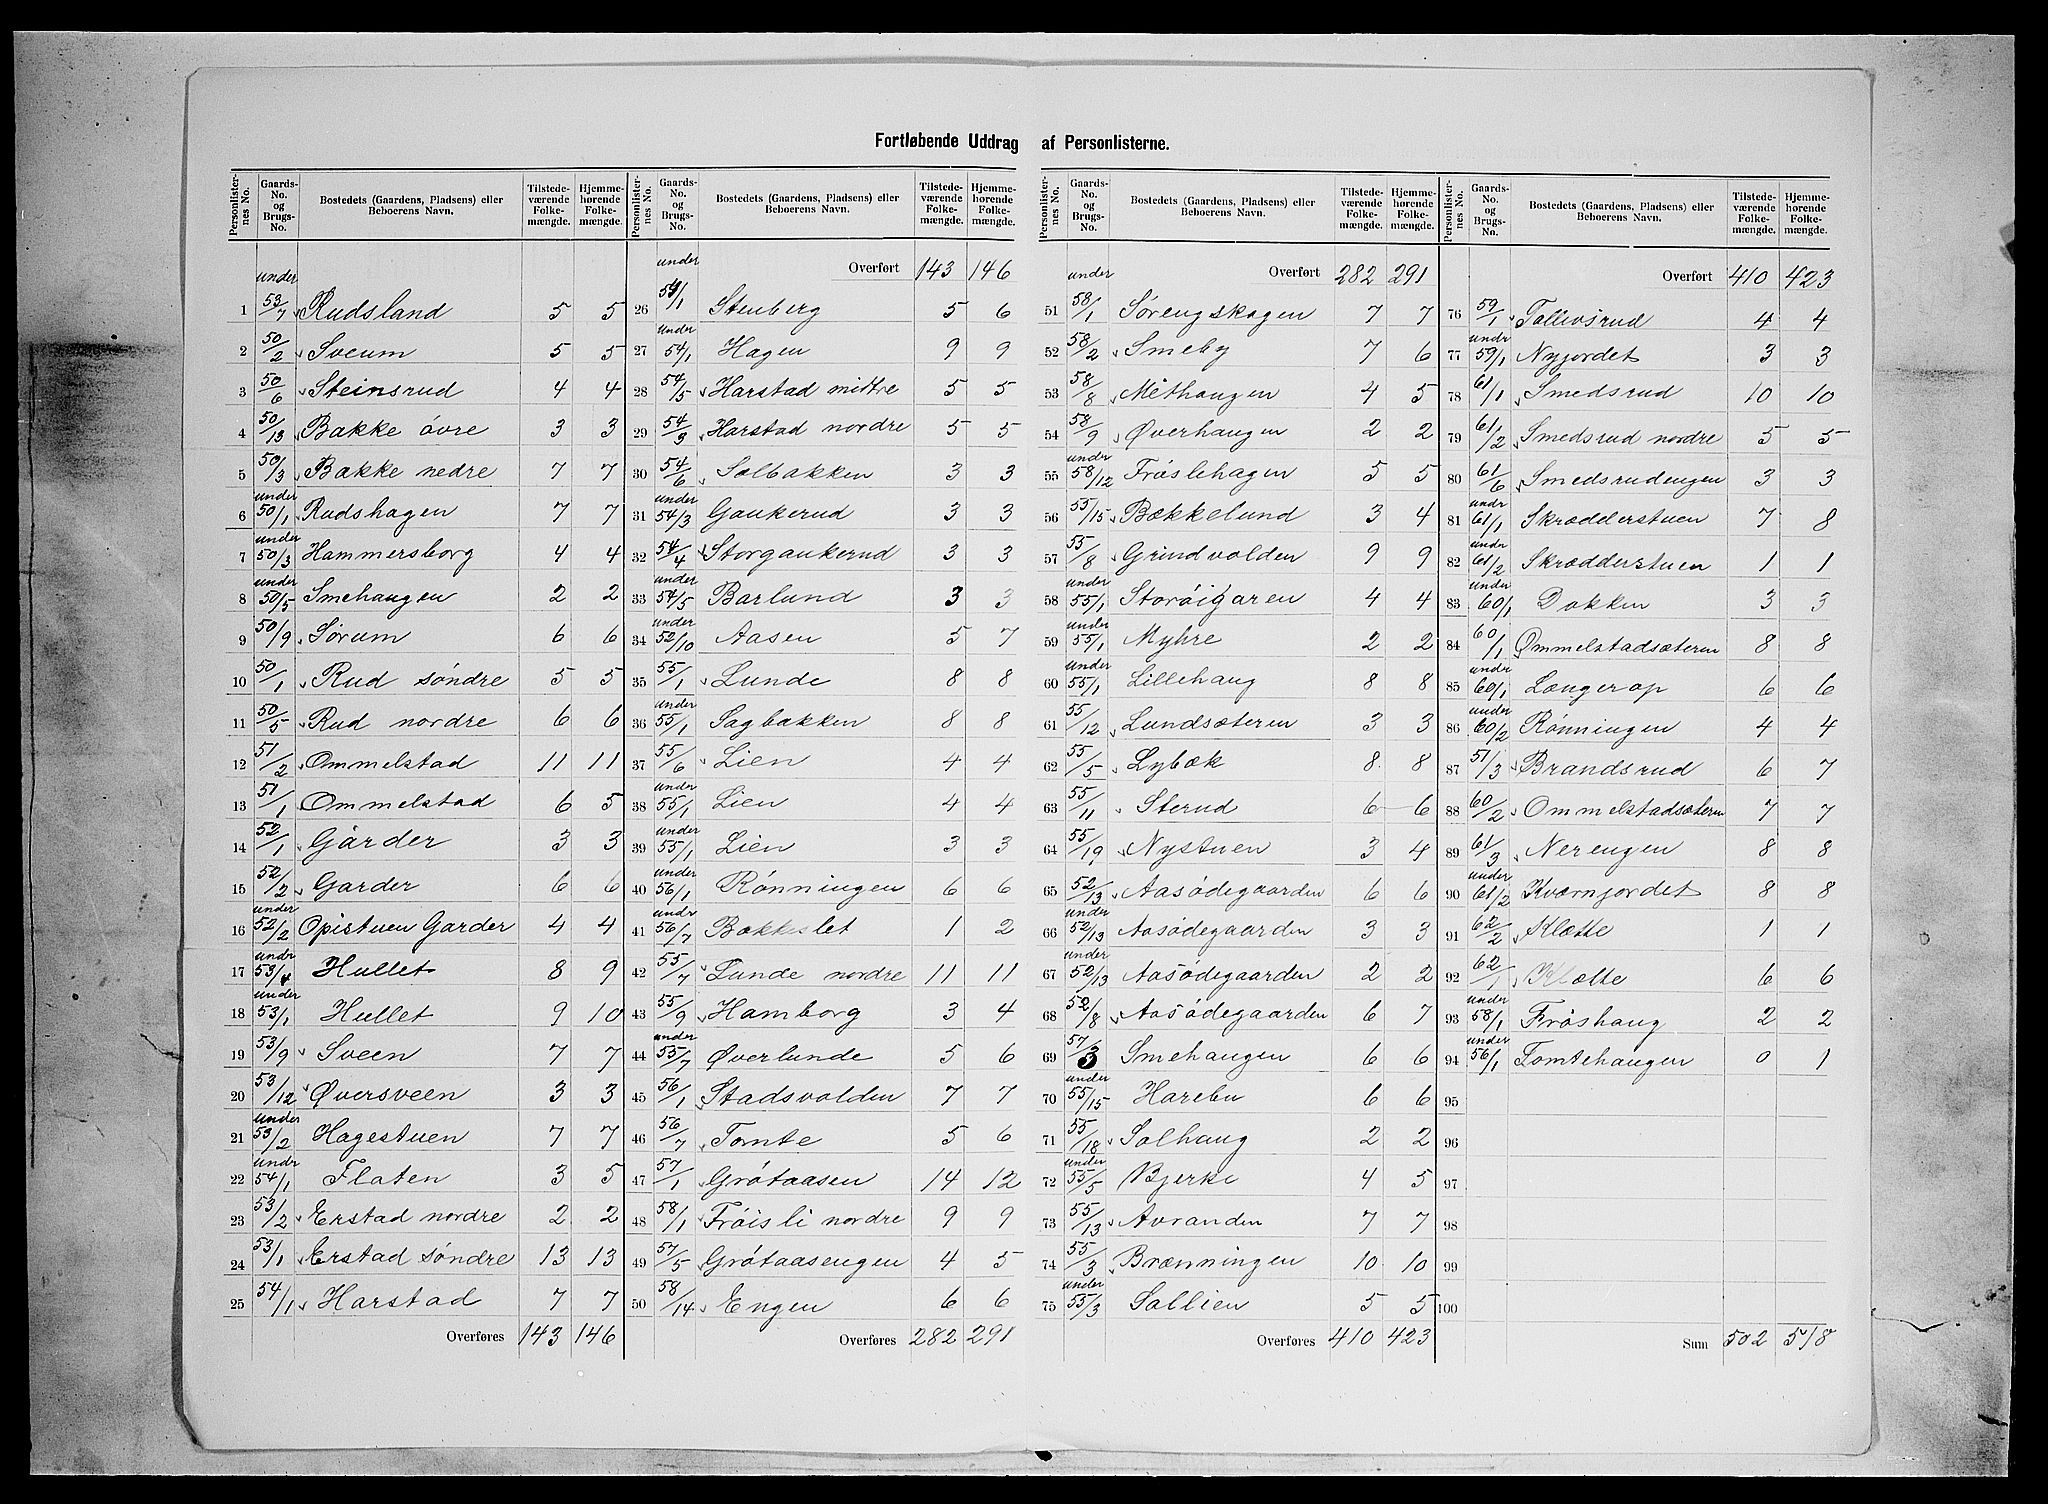 Fortløbende Uddrag af Personlisterne.
Personlister-nes No. | Gaards-No. og Brugs-No. | Bostedets (Gaardens, Pladsens) eller Beboerens Navn. | Tilstede-værende Folke-mængde. | Hjemme-hørende Folke-mængde.
1 under 53/7 Rudsland 5 5
2 50/2 Sveum 5 5
3 50/6 Steinsrud 4 4
4 50/13 Bakke øvre 3 3
5 50/3 Bakke nedre 7 7
6 under 50/1 Rudshagen 7 7
7 under 50/3 Hammersborg 4 4
8 under 50/5 Smehaugen 2 2
9 50/9 Sørum 6 6
10 50/1 Rud søndre 5 5
11 50/5 Rud nordre 6 6
12 51/2 Ommelstad 11 11
13 51/1 Ommelstad 6 5
14 52/1 Garder 3 3
15 52/2 Garder 6 6
16 under 52/2 Opistuen Garder 4 4
17 under 53/1 Hullet 8 9
18 under 53/1 Hullet 9 10
19 53/9 Sveen 7 7
20 53/12 Øversveen 3 3
21 under 53/2 Hagestuen 7 7
22 under 54/1 Flaten 3 5
23 53/2 Erstad nordre 2 2
24 53/1 Erstad søndre 13 13
25 54/1 Harstad 7 7
Overføres 143 146
Personlister-nes No. | Gaards-No. og Brugs-No. | Bostedets (Gaardens, Pladsens) eller Beboerens Navn. | Tilstede-værende Folke-mængde. | Hjemme-hørende Folke-mængde.
Overført 143 146
26 under 54/1 Stenberg 5 6
27 under 54/1 Hagen 9 9
28 54/5 Harstad midtre 5 5
29 54/3 Harstad nordre 5 5
30 54/6 Solbakken 3 3
31 under 54/3 Gaukerud 3 3
32 54/4 Storgaukerud 3 3
33 under 54/5 Barlund 3 3
34 under 52/10 Aasen 5 7
35 55/1 Lunde 8 8
36 under 55/1 Sagbakken 8 8
37 55/6 Lien 4 4
38 under 55/1 Lien 4 4
39 under 55/1 Lien 3 3
40 under 56/1 Rønningen 6 6
41 undr 56/7 Bakkeslet 1 2
42 55/7 Lunde nordre 11 11
43 55/9 Hamborg 3 4
44 under 55/7 Øverlunde 5 6
45 56/1 Stadsvolden 7 7
46 56/7 Tomte 5 6
47 57/1 Grøtaasen 14 12
48 58/1 Frøisli nordre 9 9
49 57/5 Grøtaasengen 4 5
50 58/14 Engen 6 6
Overføres 282 291
Personlister-nes No. | Gaards-No. og Brugs-No. | Bostedets (Gaardens, Pladsens) eller Beboerens Navn. | Tilstede-værende Folke-mængde. | Hjemme-hørende Folke-mængde.
Overført 282 291
51 under 58/1 Sørengskogen 7 7
52 58/2 Smeby 7 6
53 58/8 Methaugen 4 5
54 58/9 Øverhaugen 2 2
55 under 58/12 Frøslehagen 5 5
56 55/15 Bækkelund 3 4
57 55/8 Grindvolden 9 9
58 under 55/1 Storøigaren 4 4
59 under 55/1 Myhre 2 2
60 under 55/1 Lillehaug 8 8
61 55/12 Lundsæteren 3 3
62 55/5 Lybæk 8 8
63 55/11 Sterud 6 6
64 55/19 Nystuen 3 4
65 52/13 Aasødegaarden 6 6
66 under 52/13 Aasødegaarden 3 3
67 under 52/13 Aasødegaarden 2 2
68 52/8 Aasødegaarden 6 7
69 57/3 Smehaugen 6 6
70 under 55/15 Harebu 6 6
71 55/18 Solhaug 2 2
72 under 55/5 Bjerke 4 5
73 55/13 Avranden 7 7
74 55/3 Brænningen 10 10
75 under 55/3 Sollien 5 5
Overføres 410 423
Personlister-nes No. | Gaards-No. og Brugs-No. | Bostedets (Gaardens, Pladsens) eller Beboerens Navn. | Tilstede-værende Folke-mængde. | Hjemme-hørende Folke-mængde.
Overført 410 423
76 59/1 Tollevsrud 4 4
77 undr 59/1 Nyjordet 3 3
78 61/1 Smedsrud 10 10
79 61/2 Smedsrud nordre 5 5
80 61/6 Smedsrudengen 3 3
81 undr 61/1 Skrædderstuen 7 8
82 undr 61/2 Skrædderstuen 1 1
83 under 60/1 Dokken 3 3
84 60/1 Ommelstadsæteren 8 8
85 under 60/1 Længerop 6 6
86 under 60/2 Rønningen 4 4
87 51/3 Brandsrud 6 7
88 60/2 Ommelstadsæteren 7 7
89 61/3 Nerengen 8 8
90 under 61/2 Kværnjordet 8 8
91 62/2 Klætte 1 1
92 62/1 Klætte 6 6
93 under 58/1 Frøshaug 2 2
94 under 56/1 Tomtehaugen 0 1
95
96
97
98
99
100
Sum 502 518